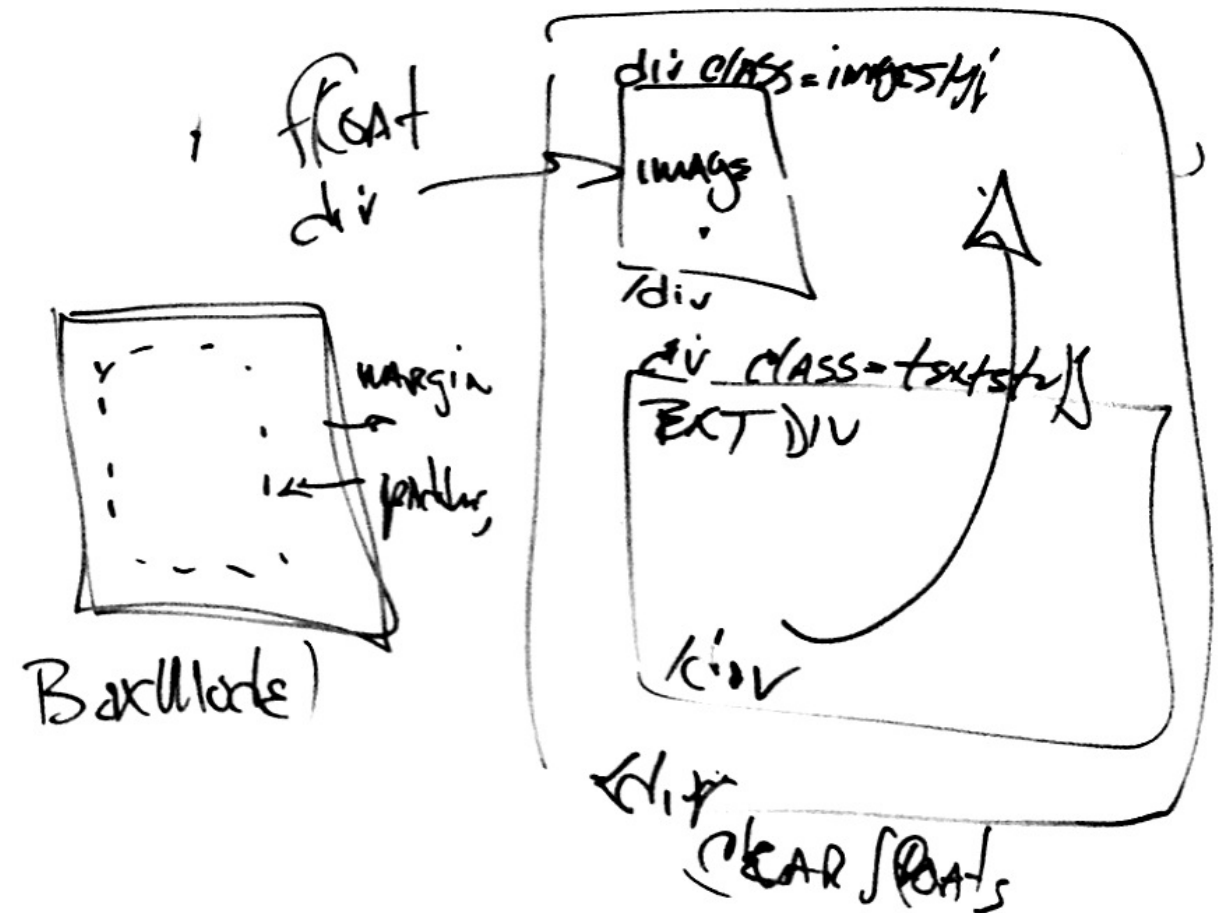 float
div
div class=imagestyl
image
/div
div class=textstyl
TEXT DIV
/div
margin
padding
BoxModel
<div
clear floats